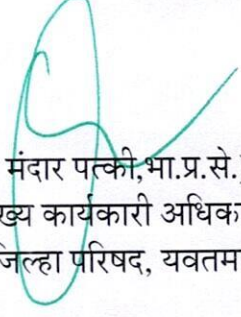 मंदार पत्की,भा.प्र.से.
ख्य कार्यकारी अधिक
जिल्हा परिषद, यवतम